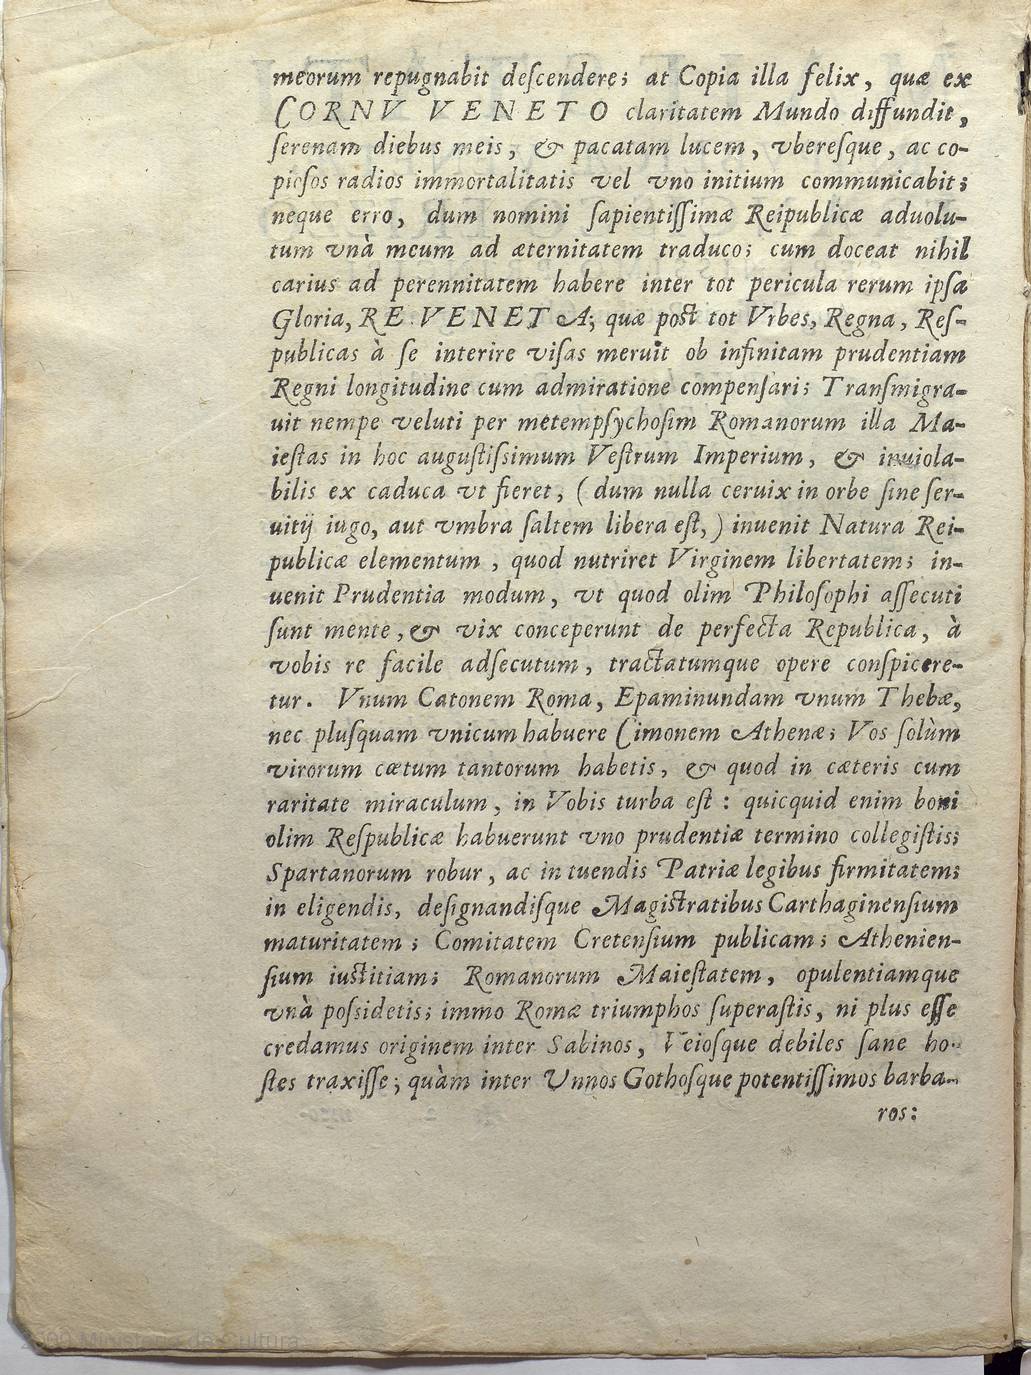 meorum repugnabit deſcendere; at Copia illa felix, quæ ex
CORNV VENETO claritatem Mundo diffundit,
ſerenam diebus meis, & pacatam lucem, vbereſque, ac co-
pioſos radios immortalitatis vel vno initium communicabit;
neque erro, dum nomini ſapientiſſimæ Reipublicæ aduolu-
tum vnà meum ad æternitatem traduco; cum doceat nihil
carius ad perennitatem habere inter tot pericula rerum ipſa
Gloria, RE VENETA; quæ poſt tot Vrbes, Regna, Reſ-
publicas à ſe interire viſas meruit ob infinitam prudentiam
Regni longitudine cum admiratione compenſari; Tranſmigra-
uit nempe veluti per metempſychoſim Romanorum illa Ma-
ieſtas in hoc auguſtiſsimum Veſtrum Imperium, & inuiola-
bilis ex caduca vt fieret, (dum nulla ceruix in orbe ſine ſer-
uitij iugo, aut vmbra ſaltem libera eſt,) inuenit Natura Rei-
publicæ elementum, quod nutriret Virginem libertatem; in-
uenit Prudentia modum, vt quod olim Philoſophi aſſecuti
ſunt mente, & vix conceperunt de perfecta Republica, à
vobis re facile adſecutum, tractatumque opere conſpicere-
tur. Vnum Catonem Roma, Epaminundam vnum Thebæ,
nec pluſquam vnicum habuere Cimonem Athenæ; Vos ſolùm
virorum cœtum tantorum habetis, & quod in cæteris cum
raritate miraculum, in Vobis turba eſt: quicquid enim boni
olim Reſpublicæ habuerunt vno prudentiæ termino collegiſtis;
Spartanorum robur, ac in tuendis Patriæ legibus firmitatem;
in eligendis, deſignandiſque Magiſtratibus Carthaginenſium
maturitatem; Comitatem Cretenſium publicam; Athenien-
ſium iuſtitiam; Romanorum Maieſtatem, opulentiamque
vnà poſsidetis; immo Romæ triumphos ſuperaſtis, ni plus eſſe
credamus originem inter Sabinos, Veioſque debiles ſane ho-
ſtes traxiſſe; quàm inter Vnnos Gothoſque potentiſſimos barba-
ros:
2009 Ministerio de Cultura